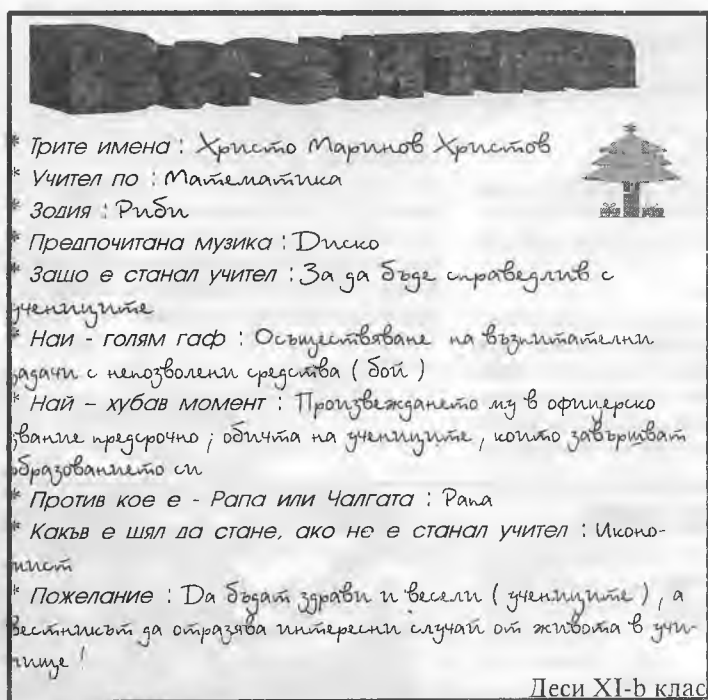 ВИЗИТКА
* Трите имена : Христо Маринов Христов
* Учител по : Математика
* Зодия : Риби
* Предпочитана музика : Диско
* Зашо е станал учител : За да бъде справедлив с
учениците
* Наи - голям гаф : Осъществяване на възпитателни
задачи с непозволени средства ( бой )
* Най – хубав момент : Произвеждането му в офицерско
звание предсрочно ; обичта на учениците , които завършват
образованието си
* Против кое е - Рапа или Чалгата : Рапа
* Какъв е шял да стане, ако не е станал учител : Иконо-
мист
* Пожелание : Да бъдат здрави и весели ( учениците ) , а
вестникът да отразява интересни случаи от живота в учи-
лище !
Деси XI-b клас